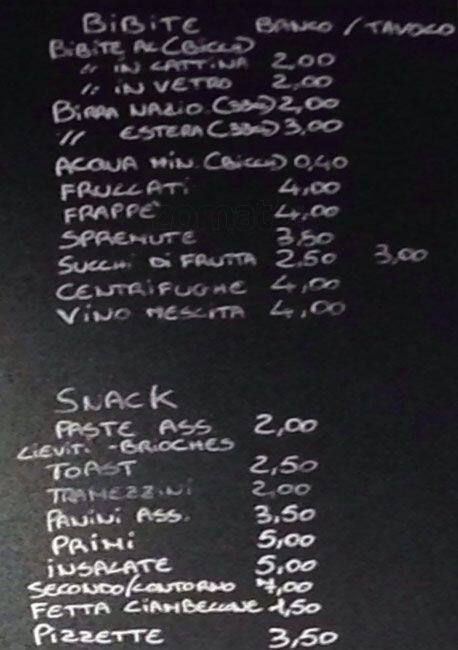 BIBITE BANCO / TAVOLO
BIBITE AL (BICCH)
" IN LATTINA 2,00
" IN VETRO 2,00
BIRRA NAZIO. (33CL) 2,00
" ESTERA (33CL) 3,00
ACQUA MIN. (BICCH) 0,40
FRULLATI 4,00
FRAPPE' 4,00
SPREMUTE 3,50
SUCCHI DI FRUTTA 2,50 3,00
CENTRIFUGHE 4,00
VINO MESCITA 4,00
SNACK
PASTE ASS 2,00
LIEVITI - BRIOCHES
TOAST 2,50
TRAMEZZINI 2,00
PANINI ASS. 3,50
PRIMI 5,00
INSALATE 5,00
SECONDO/CONTORNO 7,00
FETTA CIAMBELLONE 1,50
PIZZETTE 3,50
zomato